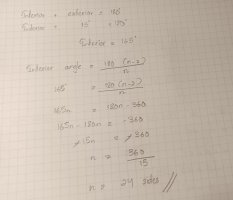 Interior + exterior = 180°
Interior = 15° + 180°
Interior = 165°
Interior angle = 180 (n-2) / n
165° = 180 (n-2) / n
165n = 180n - 360
165n - 180n = -360
-15n = -360
n = 360 / 15
n = 24 sides //